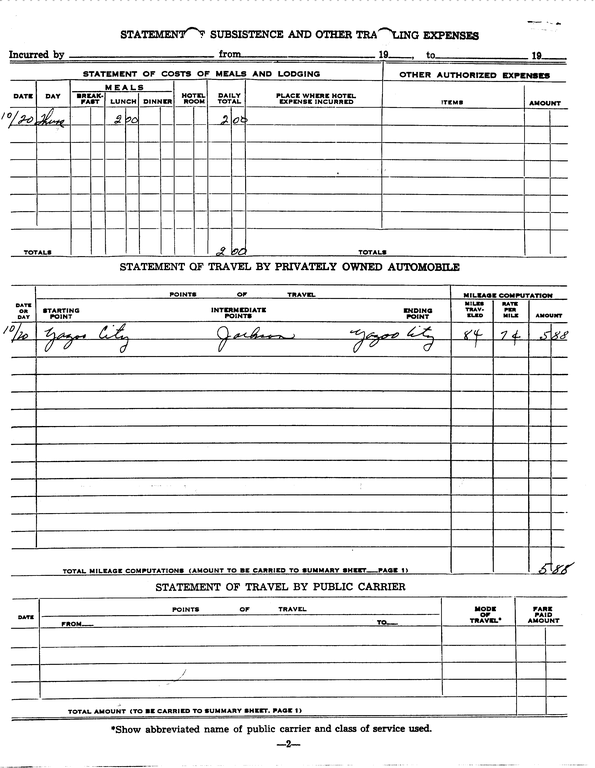 STATEMENT OF SUBSISTENCE AND OTHER TRAVELING EXPENSES
Incurred by from 19 , to 19
STATEMENT OF COSTS OF MEALS AND LODGING OTHER AUTHORIZED EXPENSES
DATE DAY MEALS HOTEL ROOM DAILY TOTAL PLACE WHERE HOTEL EXPENSE INCURRED ITEMS AMOUNT
BREAK-FAST LUNCH DINNER
10/20 Thurs 2 00 2 00
TOTALS 2 00 TOTALS
STATEMENT OF TRAVEL BY PRIVATELY OWNED AUTOMOBILE
POINTS OF TRAVEL MILEAGE COMPUTATION
DATE OR DAY STARTING POINT INTERMEDIATE POINTS ENDING POINT MILES TRAV-ELED RATE PER MILE AMOUNT
10/20 Yazoo City Jackson Yazoo City 84 7¢ 5 88
TOTAL MILEAGE COMPUTATIONS (AMOUNT TO BE CARRIED TO SUMMARY SHEET—PAGE 1) 5 88
STATEMENT OF TRAVEL BY PUBLIC CARRIER
DATE POINTS OF TRAVEL MODE OF TRAVEL* FARE PAID AMOUNT
FROM— TO—
TOTAL AMOUNT (TO BE CARRIED TO SUMMARY SHEET. PAGE 1)
*Show abbreviated name of public carrier and class of service used.
—2—